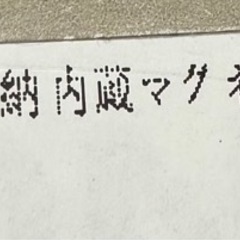 納内蔵マグネ